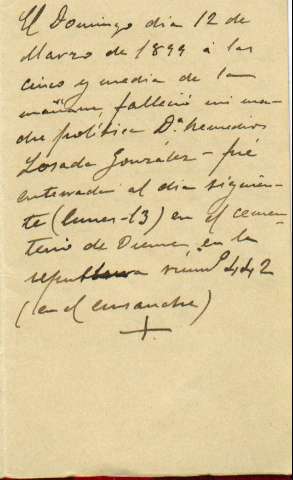 El Domingo dia 12 de
Marzo de 1899 á las
cinco y media de la
mañana, falleció mi ma-
dre política Dª Remedios
Losada González - fué
enterrada al dia siguien-
te (lunes-13) en el cemen-
terio de en la
sepultura núm.º 442
(en el ensanche)